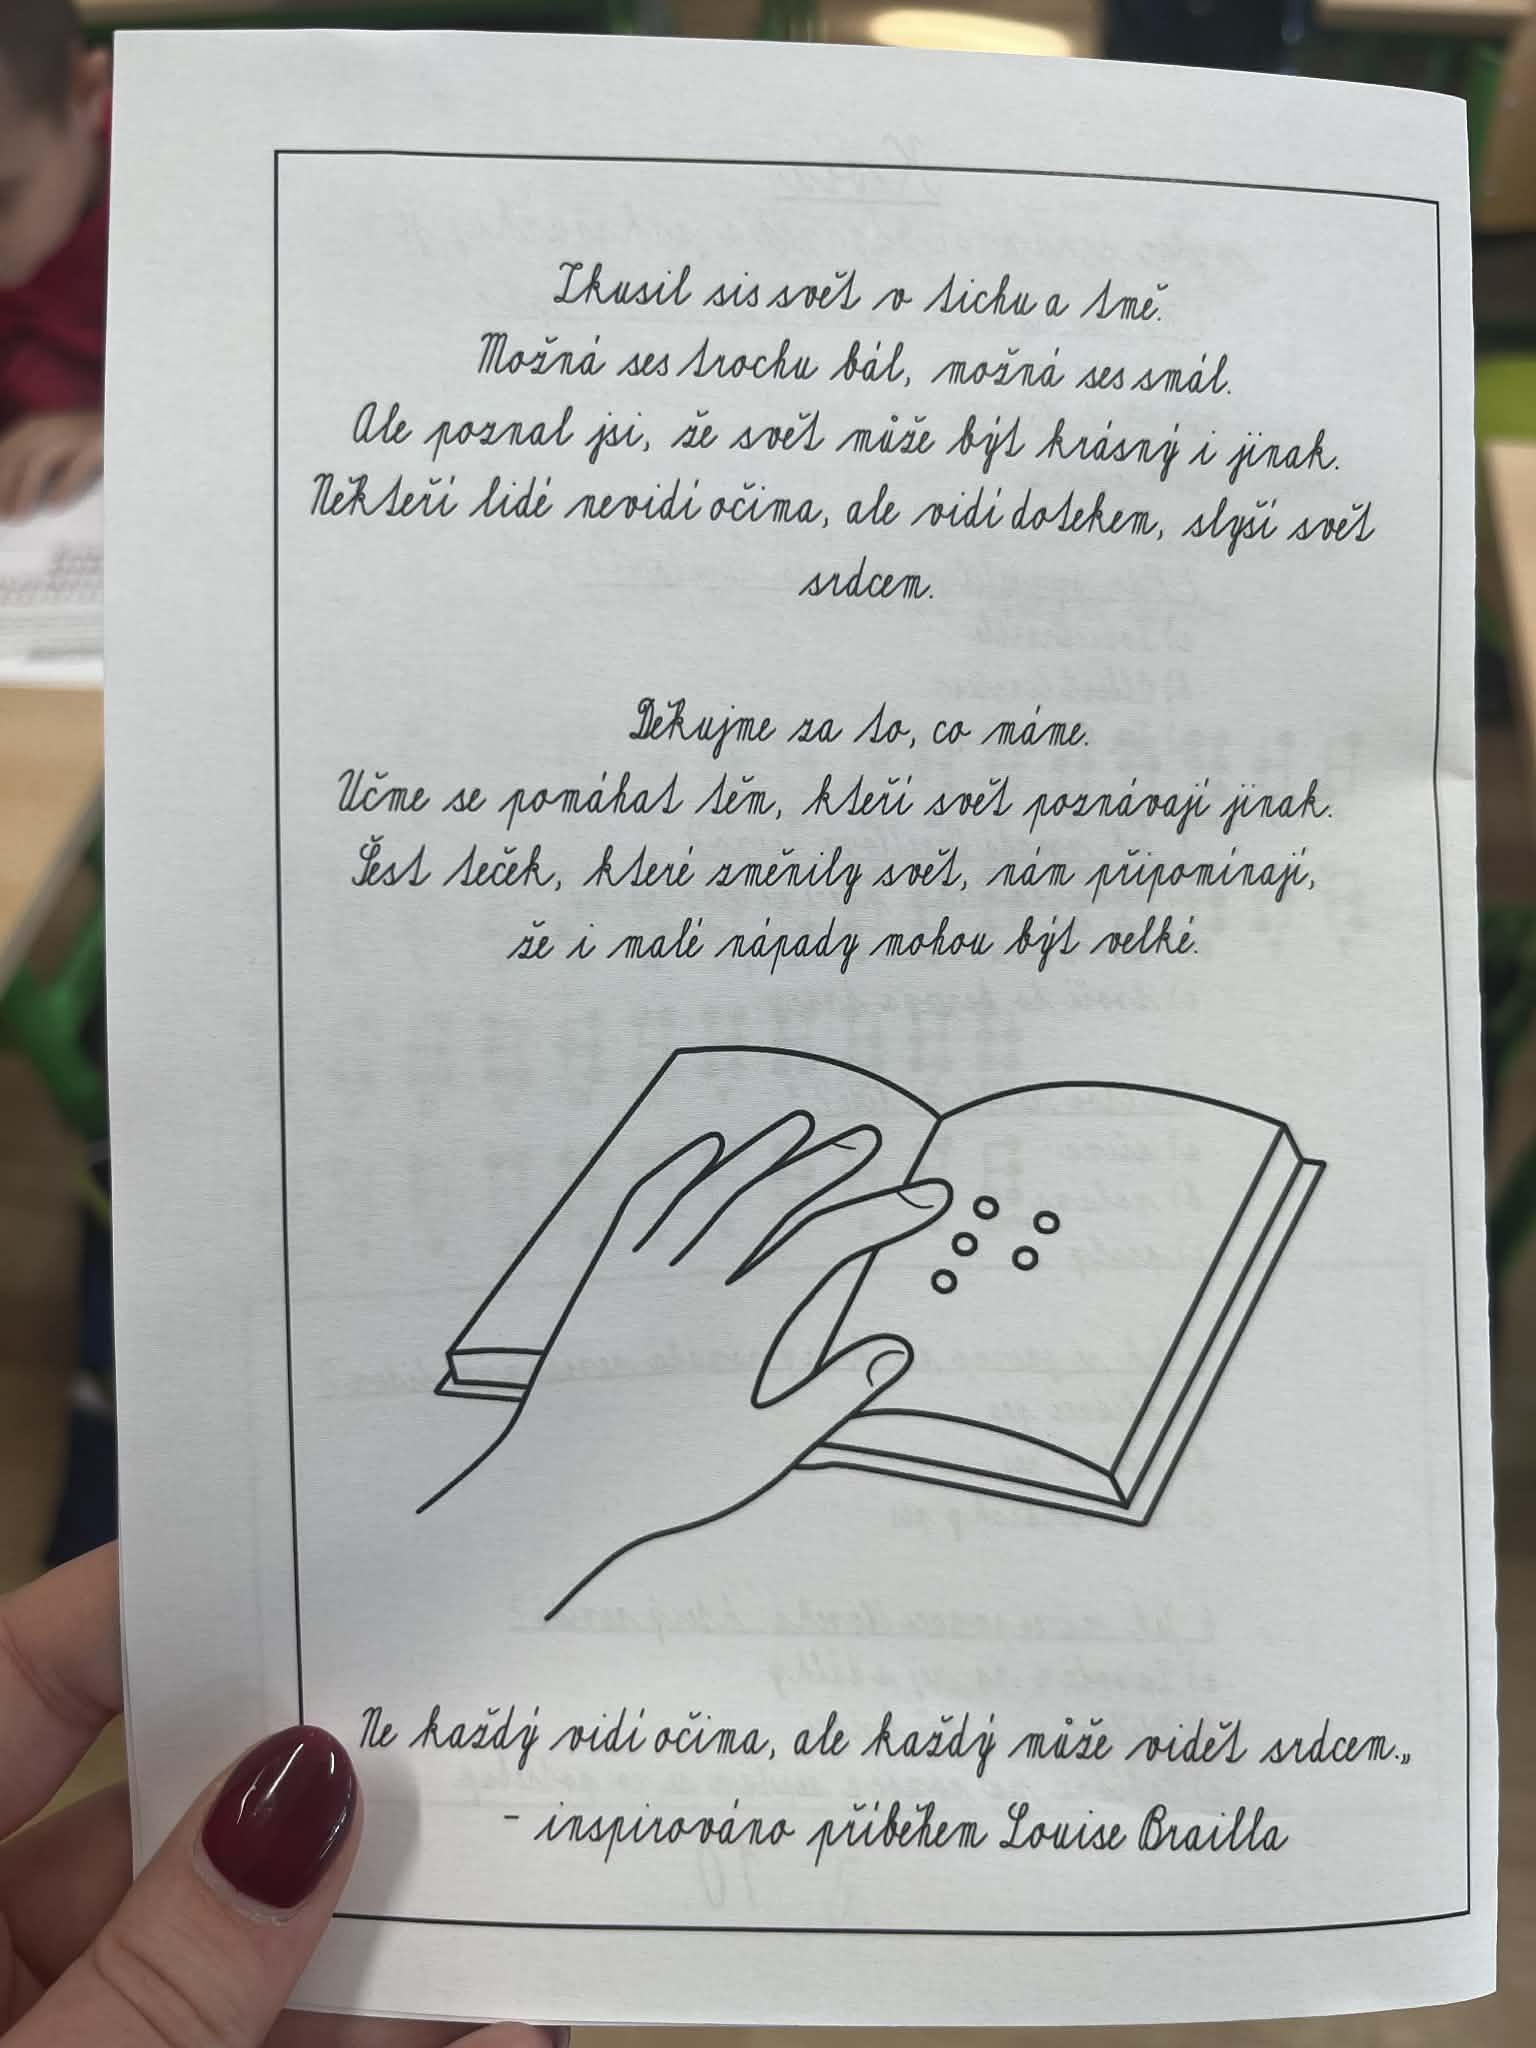 Zkusil sis svět v tichu a tmě.
Možná ses trochu bál, možná ses smál.
Ale poznal jsi, že svět může být krásný i jinak.
Někteří lidé nevidí očima, ale vidí dotekem, slyší svět
srdcem.
Děkujme za to, co máme.
Učme se pomáhat těm, kteří svět poznávají jinak.
Šest teček, které změnily svět, nám připomínají,
že i malé nápady mohou být velké.
Ne každý vidí očima, ale každý může vidět srdcem.„
- inspirováno příběhem Louise Brailla